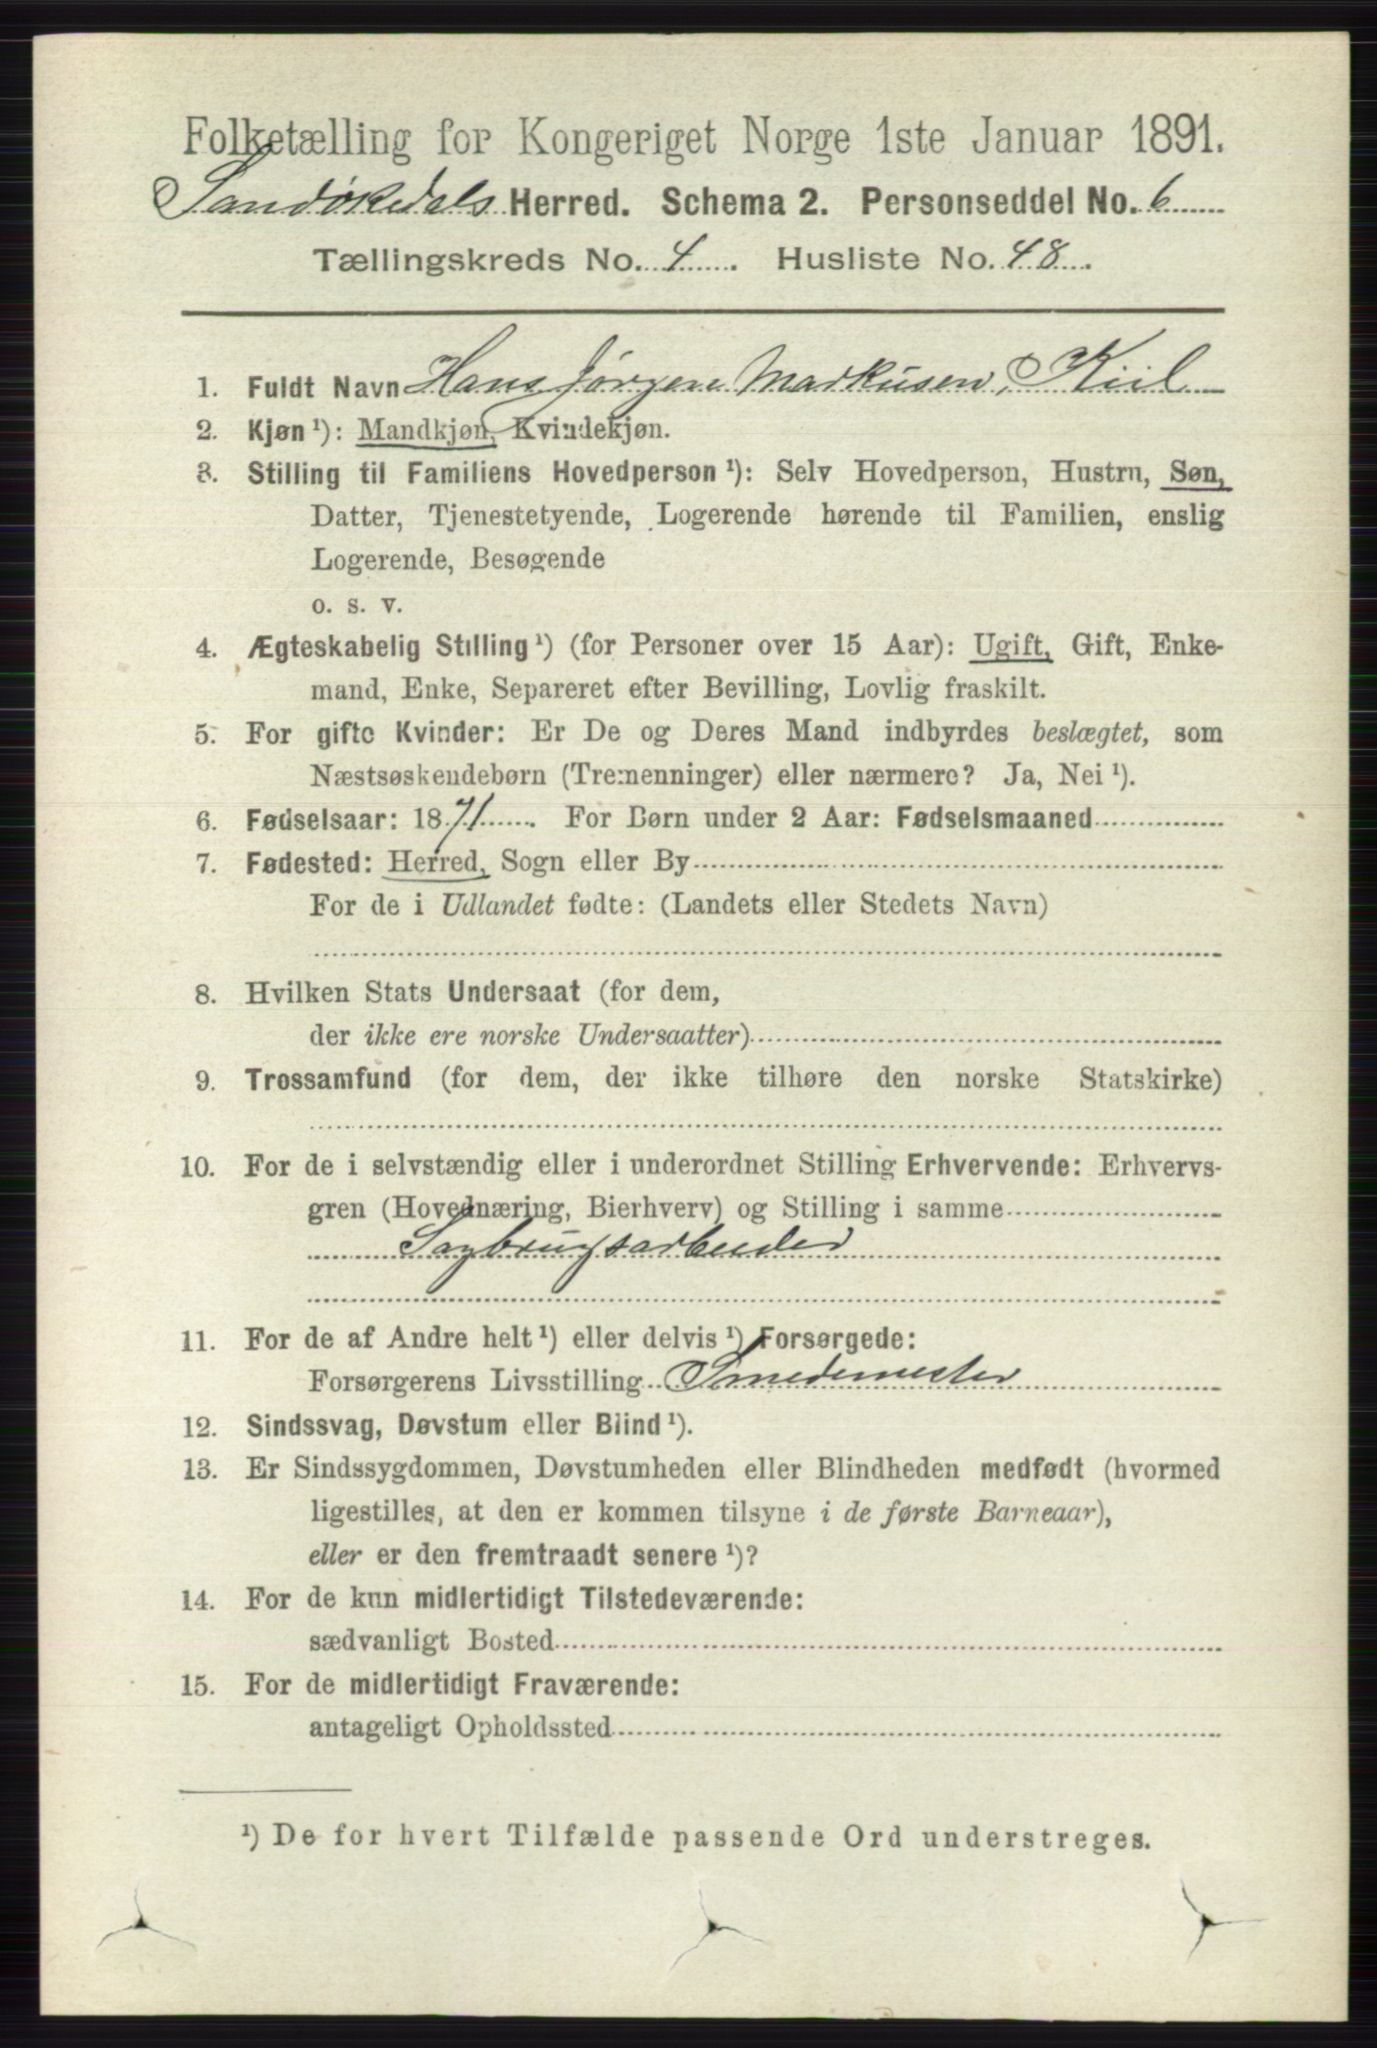 Folketælling for Kongeriget Norge 1ste Januar 1891.
Sandøkedals Herred. Schema 2. Personseddel No. 6
Tællingskreds No. 4. Husliste No. 48.
1. Fuldt Navn Hans Jørgen Markusen, Kiil
2. Kjøn¹): Mandkjøn, Kvindekjøn.
3. Stilling til Familiens Hovedperson¹): Selv Hovedperson, Hustru, Søn,
Datter, Tjenestetyende, Logerende hørende til Familien, enslig
Logerende, Besøgende
o. s. v.
4. Ægteskabelig Stilling¹) (for Personer over 15 Aar): Ugift, Gift, Enke-
mand, Enke, Separeret efter Bevilling, Lovlig fraskilt.
5. For gifte Kvinder: Er De og Deres Mand indbyrdes beslægtet, som
Næstsøskendebørn (Tremenninger) eller nærmere? Ja, Nei¹).
6. Fødselsaar: 1871. For Børn under 2 Aar: Fødselsmaaned
7. Fødested: Herred, Sogn eller By
For de i Udlandet fødte: (Landets eller Stedets Navn)
8. Hvilken Stats Undersaat (for dem,
der ikke ere norske Undersaatter)
9. Trossamfund (for dem, der ikke tilhøre den norske Statskirke)
10. For de i selvstændig eller i underordnet Stilling Erhvervende: Erhvervs-
gren (Hovednæring, Bierhverv) og Stilling i samme
Sagbrugsarbeider
11. For de af Andre helt¹) eller delvis¹) Forsørgede:
Forsørgerens Livsstilling Smedemester
12. Sindssvag, Døvstum eller Blind¹).
13. Er Sindssygdommen, Døvstumheden eller Blindheden medfødt (hvormed
ligestilles, at den er kommen tilsyne i de første Barneaar),
eller er den fremtraadt senere¹)?
14. For de kun midlertidigt Tilstedeværende:
sædvanligt Bosted
15. For de midlertidigt Fraværende:
antageligt Opholdssted
¹) De for hvert Tilfælde passende Ord understreges.